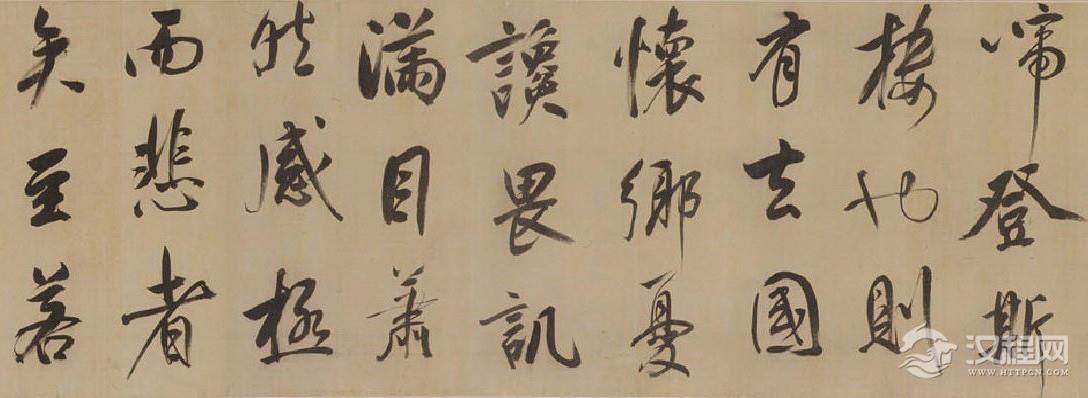 啼登斯
樓也則
有去國
懷鄉憂
讒畏譏
滿目蕭
然感極
而悲者
矣至若
汉程网
WWW.HTTPCN.COM